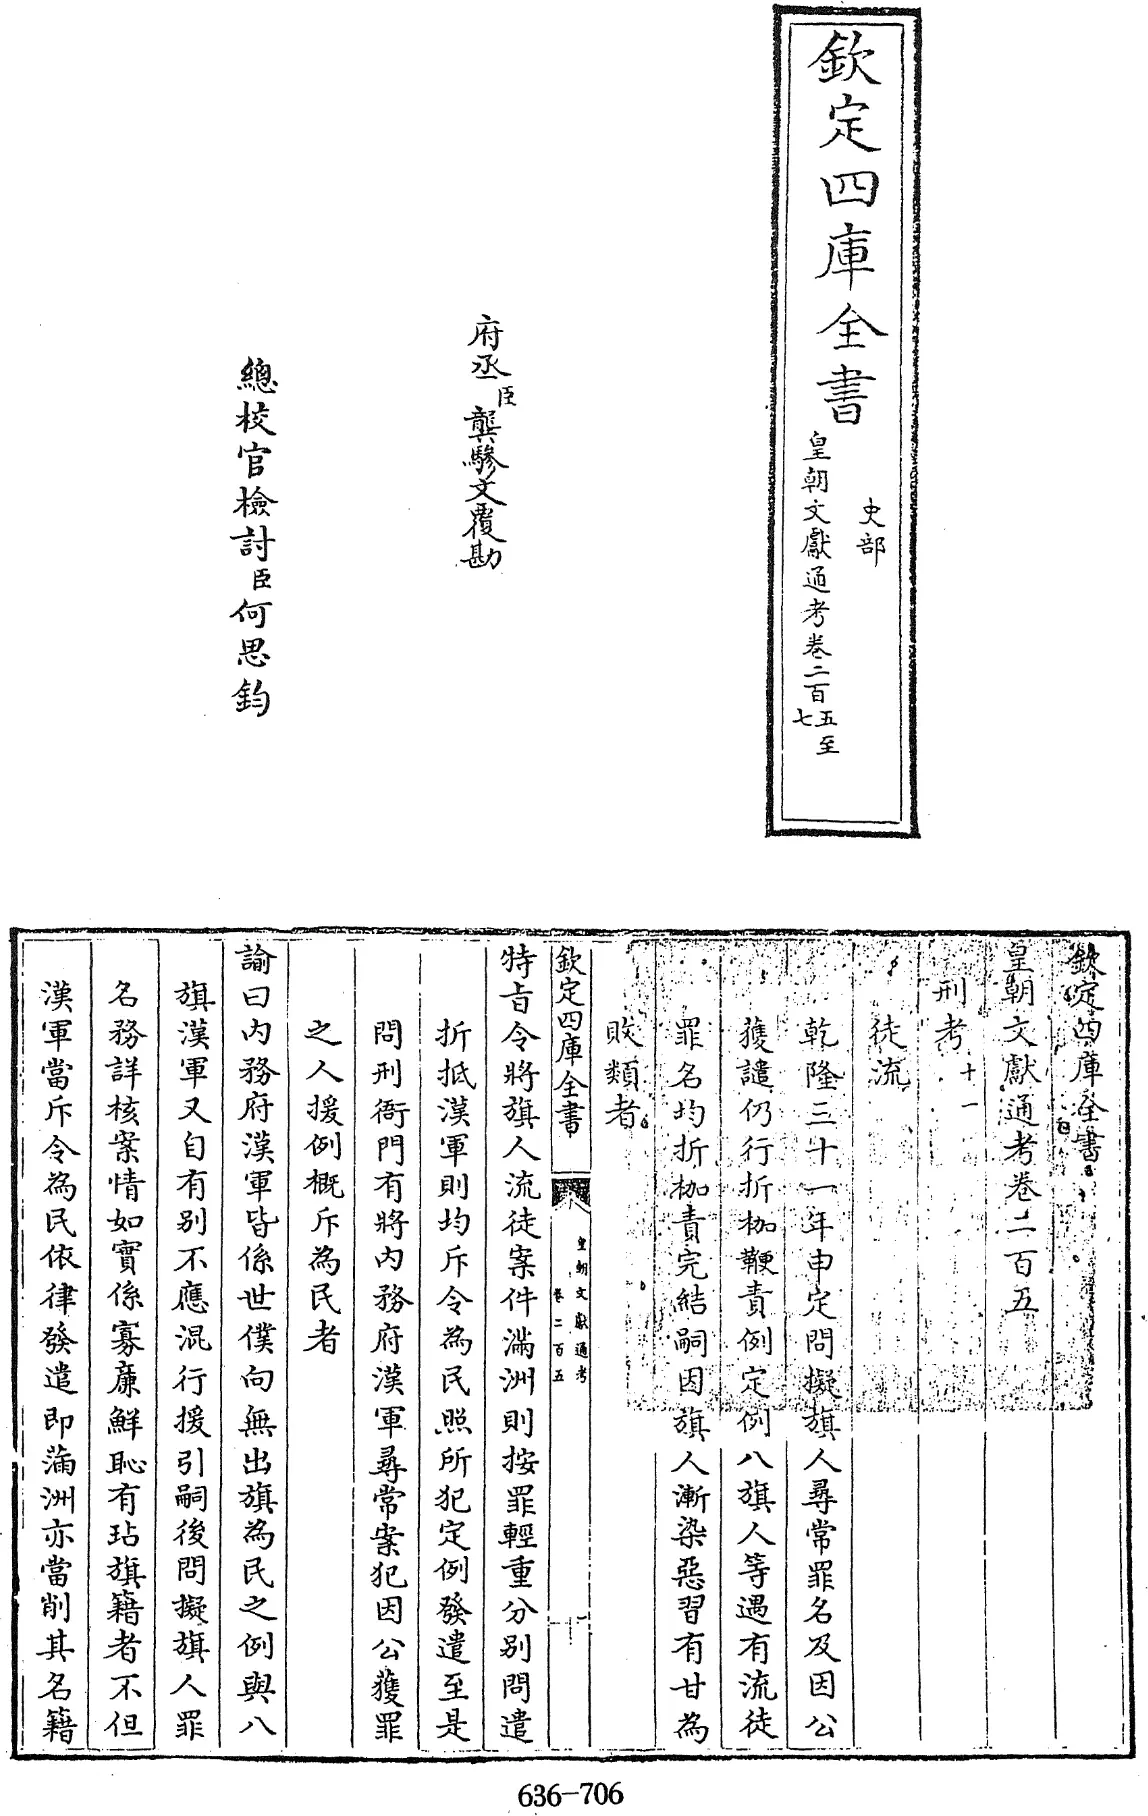 欽定四庫全書
史部
皇朝文獻通考卷二百五至
七
府丞臣龔驂文覆勘
總校官檢討臣何思鈞
欽定四庫全書
皇朝文獻通考卷二百五
刑考十一
徒流
乾隆三十一年申定問擬旗人尋常罪名及因公
獲譴仍行折枷鞭責例定例八旗人等遇有流徒
罪名均折枷責完結嗣因旗人漸染惡習有甘為
敗類者
欽定四庫全書
皇朝文獻通考
卷二百五
一
特旨令將旗人流徒案件滿洲則按罪輕重分別問遣
折抵漢軍則均斥令為民照所犯定例發遣至是
問刑衙門有將內務府漢軍尋常案犯因公獲罪
之人援例概斥為民者
諭曰內務府漢軍皆係世僕向無出旗為民之例與八
旗漢軍又自有别不應混行援引嗣後問擬旗人罪
名務詳核案情如實係寡廉鮮恥有玷旗籍者不但
漢軍當斥令為民依律發遣即滿洲亦當削其名籍
636-706